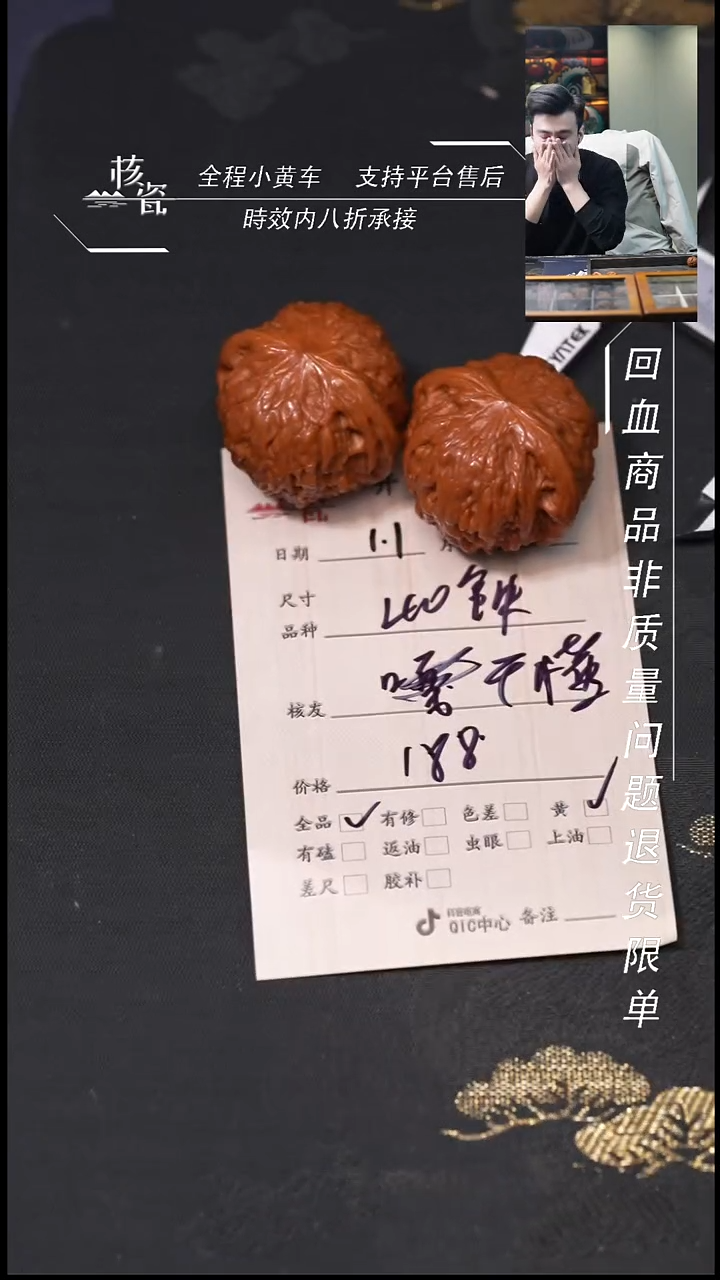 核瓷
全程小黄车 支持平台售后
時效内八折承接
回血商品非质量问题退货限单
日期 1.1 月
尺寸
品种
核发
价格 188
全品 ✓ 有修 色差 黄 ✓
有磕 返油 虫眼 上油
差尺 胶补
抖音电商
QIC中心 备注